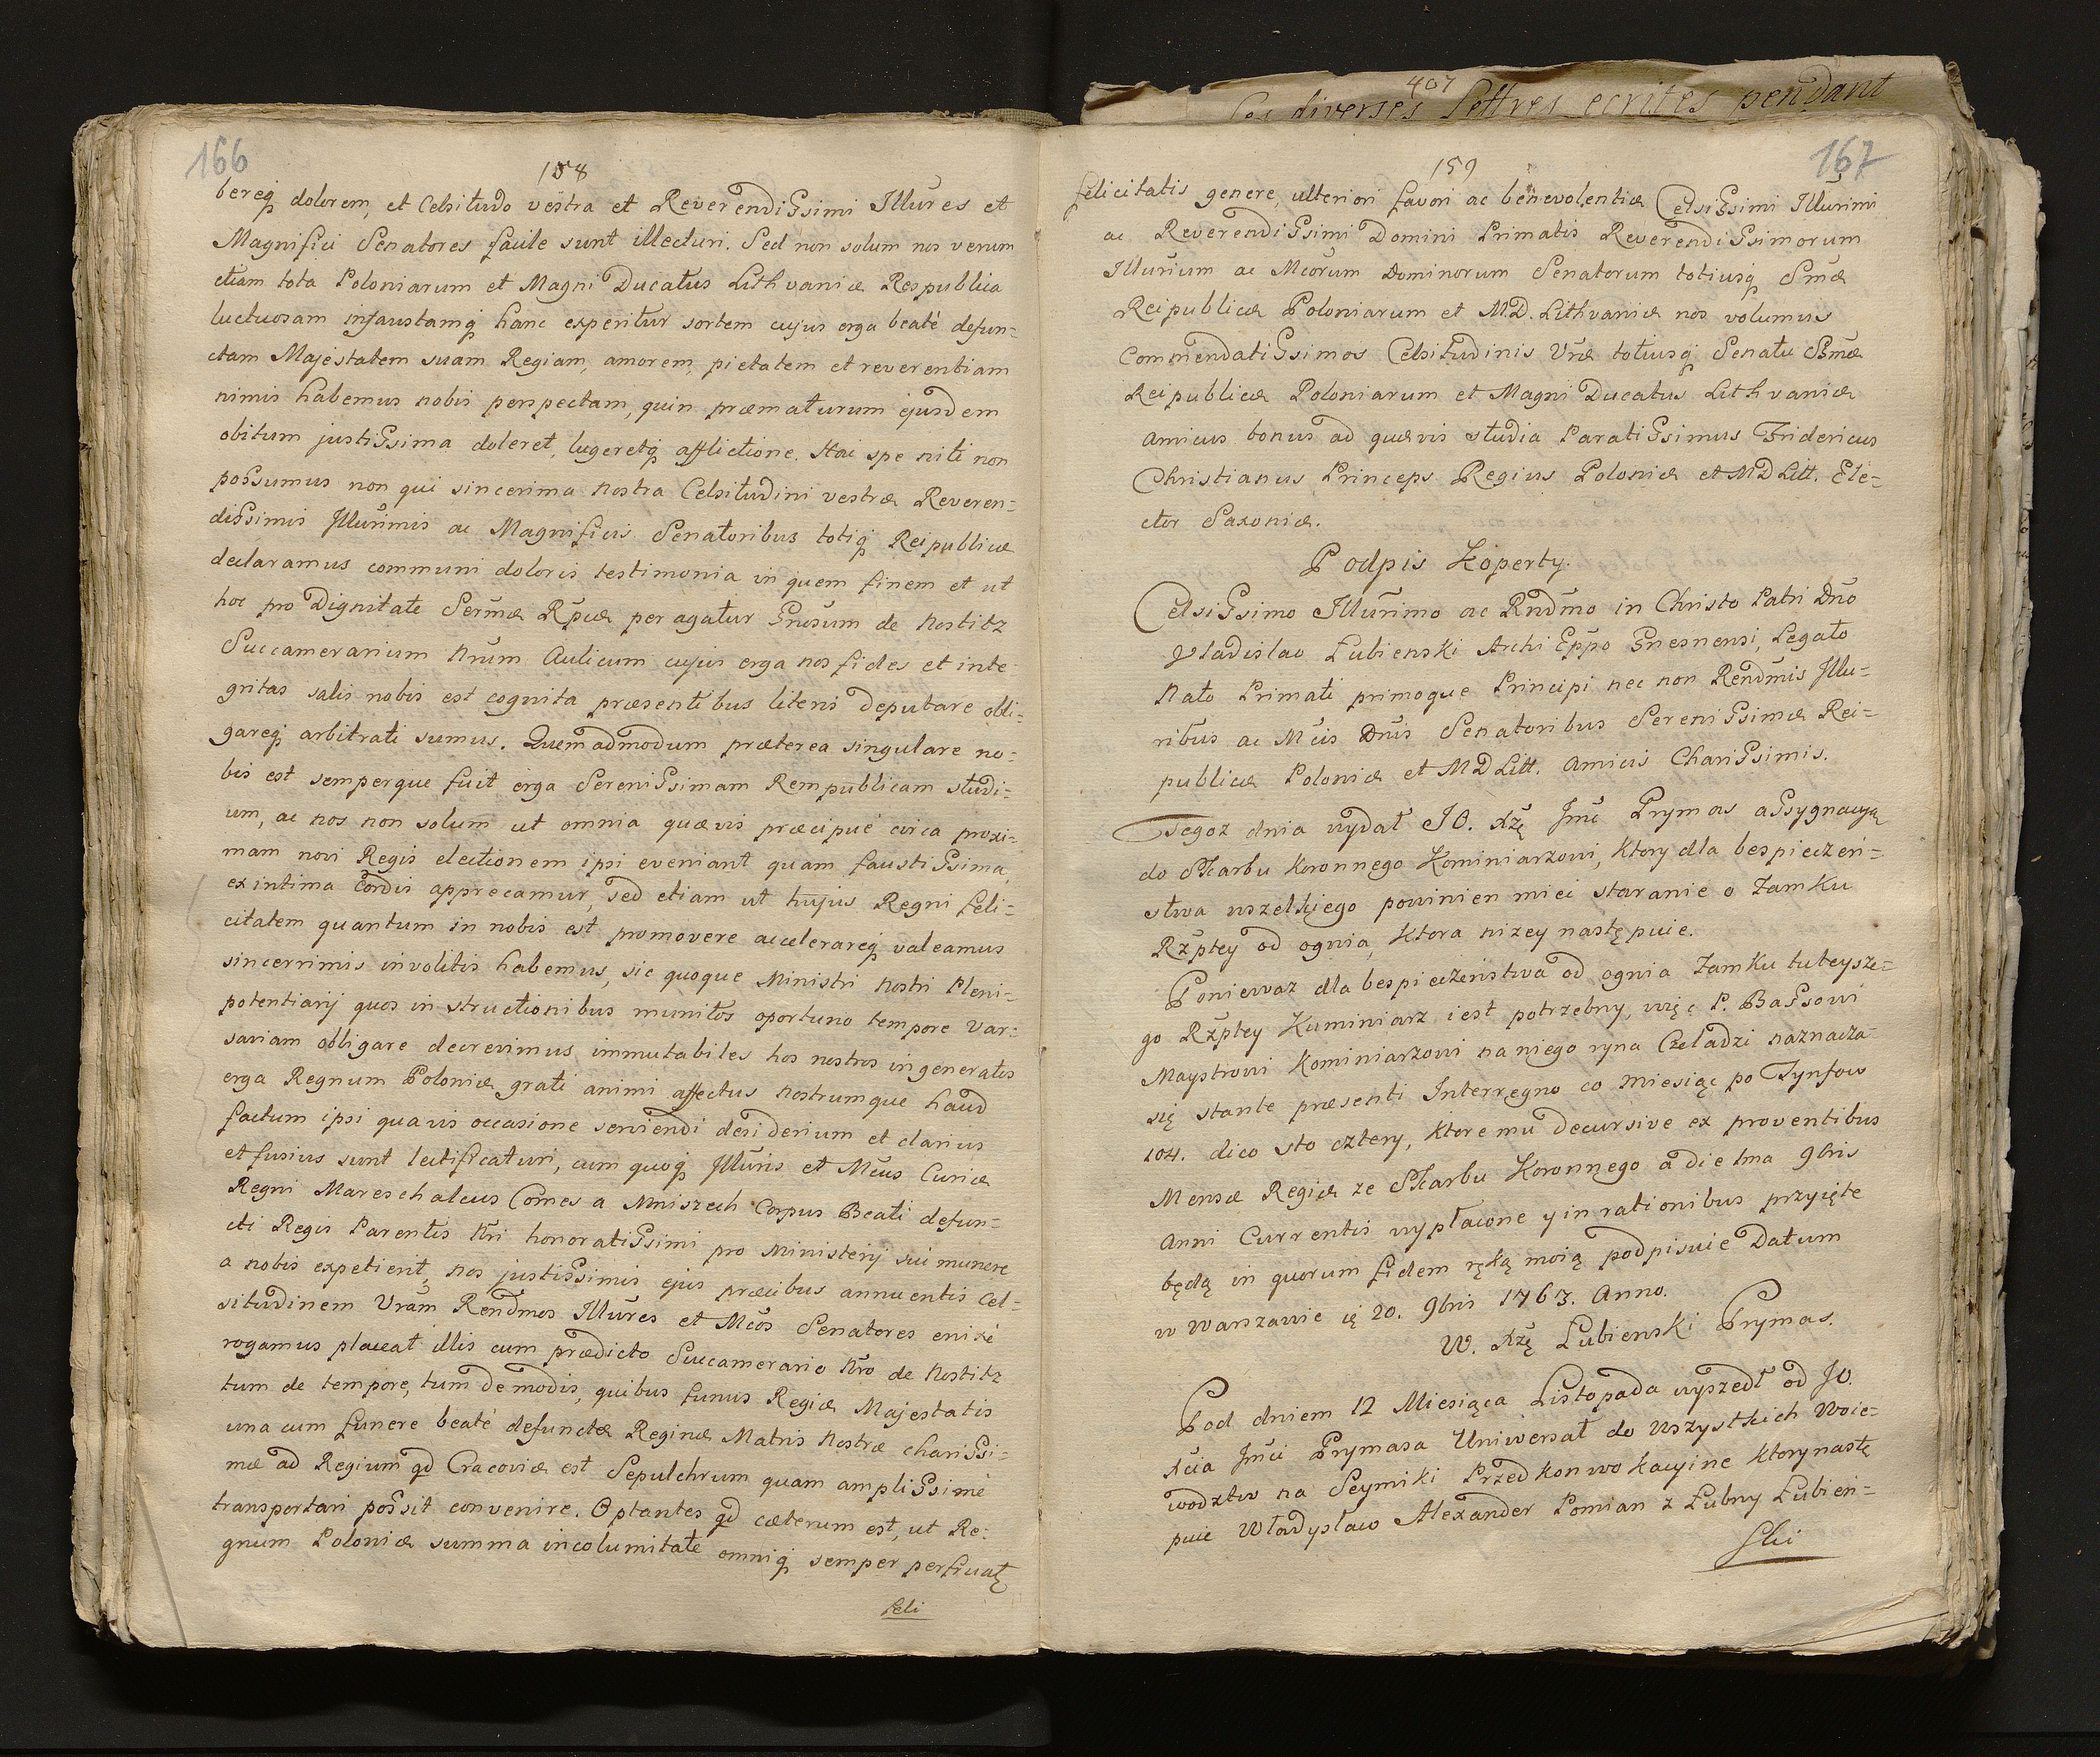 166
158
bereq dolorem, et Celsitudo vestra et Reverendissimi Illũres et
Magnifici Senatores facile sunt illecturi. Sed non solum nos verum
etiam tota Poloniarum et Magni Ducatus Lithvaniæ Respublica
luctuosam infaustamq hanc experitur sortem cujus erga beatè defun=
ctam Majestatem suam Regiam, amorem, pietatem et reverentiam
nimis habemus nobis perspectam, quin præmaturum ejusdem
obitum justissima doleret, lugeretq afflictione. Hac spe niti non
possumus non qui sincerima nostra Celsitudini vestræ Reveren=
dissimis Illurimis ac Magnificis Senatoribus totiq Reipublicæ
declaramus communi doloris testimonia in quem finem et ut
hoc pro Dignitate Sermæ Rpcæ peragatur Gnosum de Nostitz
Succamerarium Nrum Aulicum cujus erga nos fides et inte=
gritas satis nobis est cognita præsentibus literis deputare obli=
gareq arbitrati sumus. Quemadmodum præterea singulare no=
bis est semperque fuit erga Serenissimam Rempublicam studi=
um, ac nos non solum ut omnia quævis præcipuè circa proxi=
mam novi Regis electionem ipsi eveniant quam faustissima,
ex intima cordis apprecamur, sed etiam ut hujus Regni feli=
citatem quantum in nobis est promovere accelerareq valeamus
sincerrimis in volitis habemus, sic quoque Ministri Nostri Pleni=
potentiarij quos instructionibus munitos oportuno tempore Var=
saviam obligare decrevimus immutabiles hos nostros ingeneratos
erga Regnum Poloniæ grati animi affectus nostrumque haud
factum ipsi quavis occasione serviendi desiderium et clarius
et fusius sunt lectificaturi, cum quoq Illuris et Mcus Curiæ
Regni Mareschalcus Comes a Mniszech Corpus Beati defun=
cti Regis Parentis Nri honoratissimi pro Ministerij sui munere
a nobis expetierit, nos justissimis ejus præcibus annuentis Cel=
situdinem Vram Rendmos Illũres et Mcos Senatores enixè
rogamus placeat illis cum prædicto Succamerario Nro de Nostitz
tum de tempore, tum de modis, quibus funus Regiæ Majestatis
una cum funere beatè defunctæ Reginæ Matris Nostræ charissi=
mæ ad Regium qd Cracoviæ est Sepulchrum quam amplissimè
transportari possit convenire. Optantes qd cæterum est, ut Re=
gnum Poloniæ summa incolumitate omniq semper perfruatę
feli
407
Les diverses lettres ecrites pendant
167
159
felicitatis genere, ulteriori favori ac benevolentiæ Celsissimi Illurimi
ac Reverendissimi Domini Primatis Reverendissimorum
Illurium ac Mcorum Dominorum Senatorum totiusq Smæ
Reipublicæ Poloniarum et MD. Lithvaniæ nos volumus
Commendatissimos Celsitudinis Vræ totiusq Senatu Smæ
Reipublicæ Poloniarum et Magni Ducatus Lithvaniæ
Amicus bonus ad quævis studia Paratissimus Fridericus
Christianus Princeps Regius Poloniæ et MD Litt. Ele=
ctor Saxoniæ.
Podpis Koperty.
Celsissimo Illurimo ac Rndmo in Christo Patri Dno
Vladislao Łubienski Archi Eppo Gnesnensi, Legato
Nato Primati primoque Principi nec non Rendmis Illu=
ribus ac Mcis Dnis Senatoribus Serenissimæ Rei=
publicæ Poloniæ et MD Litt. Amicis Charissimis.
Tegoz dnia wydał JO. Xżę Jmć Prymas assygnacyą
do Skarbu Koronnego Kominiarzowi, ktory dla bespieczeń=
stwa wszelkiego powinien mieć staranie o Zamku
Rzptey od ognia, ktora nizey następuie.
Poniewaz dla bespieczeństwa od ognia Zamku tuteysze=
go Rzptey Kuminiarz iest potrzebny, więc P. Bassowi
Maystrowi Kominiarzowi na niego y na Czeladzi naznacza
się stante præsenti Interregno co miesiąc po Tynfow
104. dico sto cztery, ktoremu decursive ex proventibus
Mensæ Regiæ ze Skarbu Koronnego à die 1ma 9bris
Anni Currentis wypłacone y in rationibus przyięte
będą in quorum fidem ręką moią podpisuie Datum
w Warszawie ię 20. 9bris 1763. Anno.
W. Xżę Łubienski Prymas.
Pod dniem 12 Miesiąca Listopada wyszedł od JO.
Xcia Jmci Prymasa Uniwersał do Wszystkich Woie=
wodztw na Seymiki Przedkonwokacyine ktory nastę
puie Władysław Alexander Pomian z Łubny Łubien=
ski